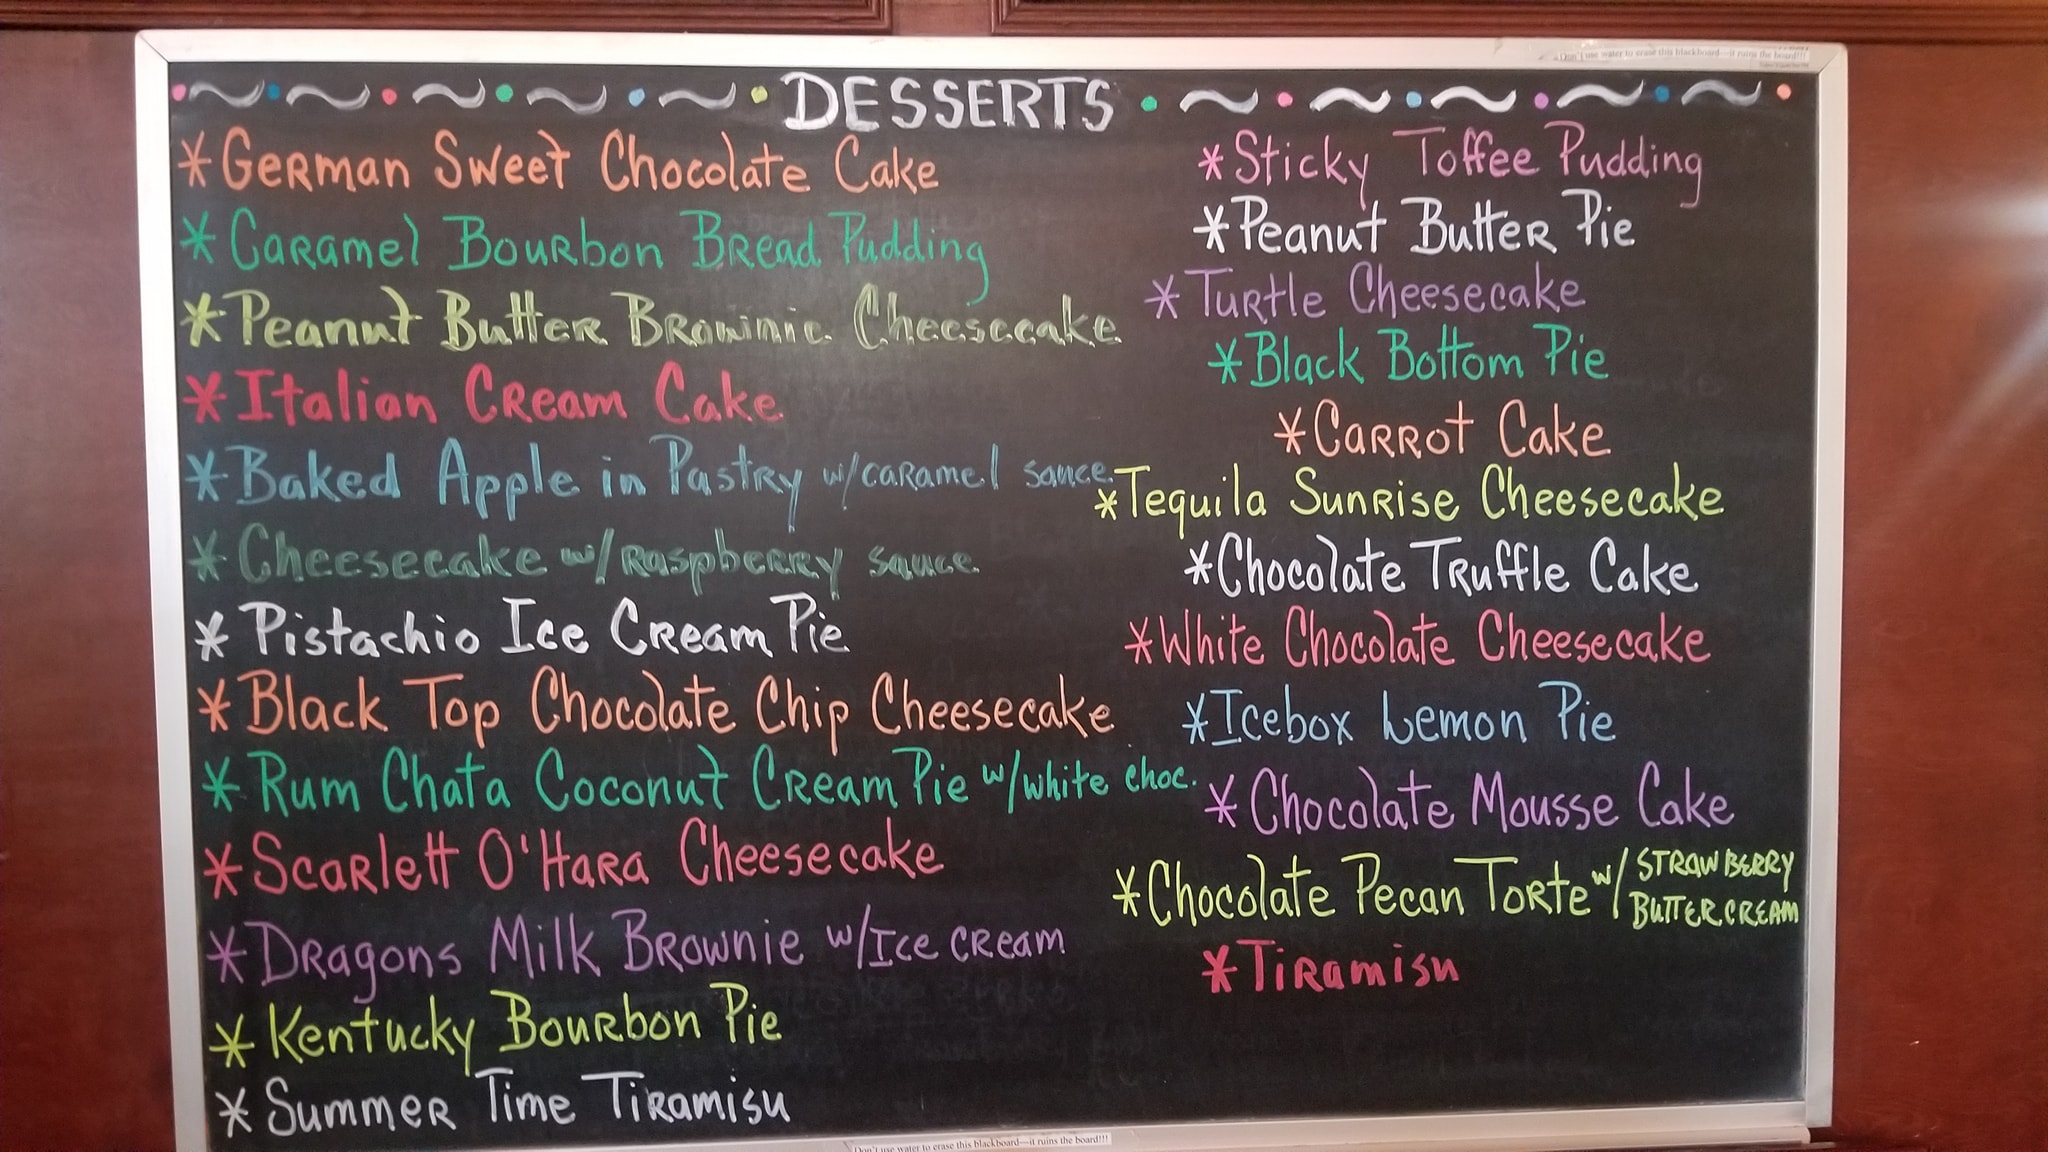 Don't use water to erase this blackboard—it ruins the board!!!
DESSERTS
*German Sweet Chocolate Cake
*Caramel Bourbon Bread Pudding
*Peanut Butter Brownie Cheesecake
*Italian Cream Cake
*Baked Apple in Pastry w/caramel sauce
*Cheesecake w/raspberry sauce
*Pistachio Ice Cream Pie
*Black Top Chocolate Chip Cheesecake
*Rum Chata Coconut Cream Pie w/white choc.
*Scarlett O'Hara Cheesecake
*Dragons Milk Brownie w/Ice cream
*Kentucky Bourbon Pie
*Summer Time Tiramisu
*Sticky Toffee Pudding
*Peanut Butter Pie
*Turtle Cheesecake
*Black Bottom Pie
*Carrot Cake
*Tequila Sunrise Cheesecake
*Chocolate Truffle Cake
*White Chocolate Cheesecake
*Icebox Lemon Pie
*Chocolate Mousse Cake
*Chocolate Pecan Torte w/STRAWBERRY
BUTTERCREAM
*Tiramisu
Don't use water to erase this blackboard—it ruins the board!!!